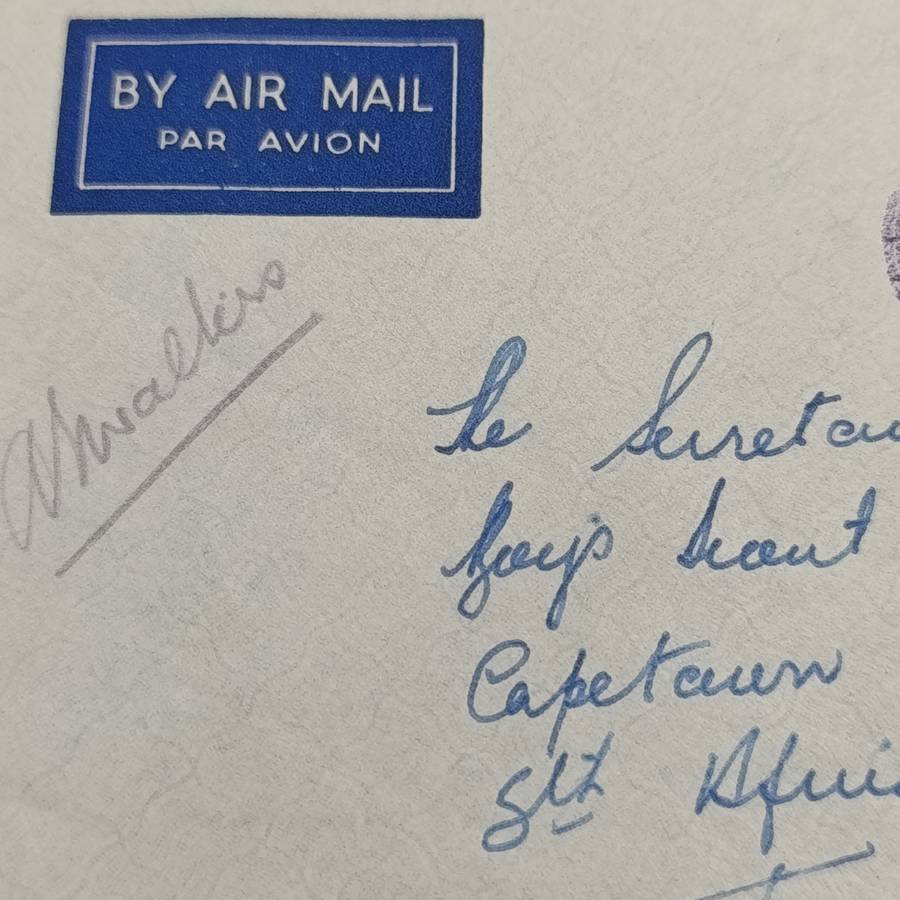 BY AIR MAIL
PAR AVION
The Secretar
Boys Scout
Capetown
Sth Afric